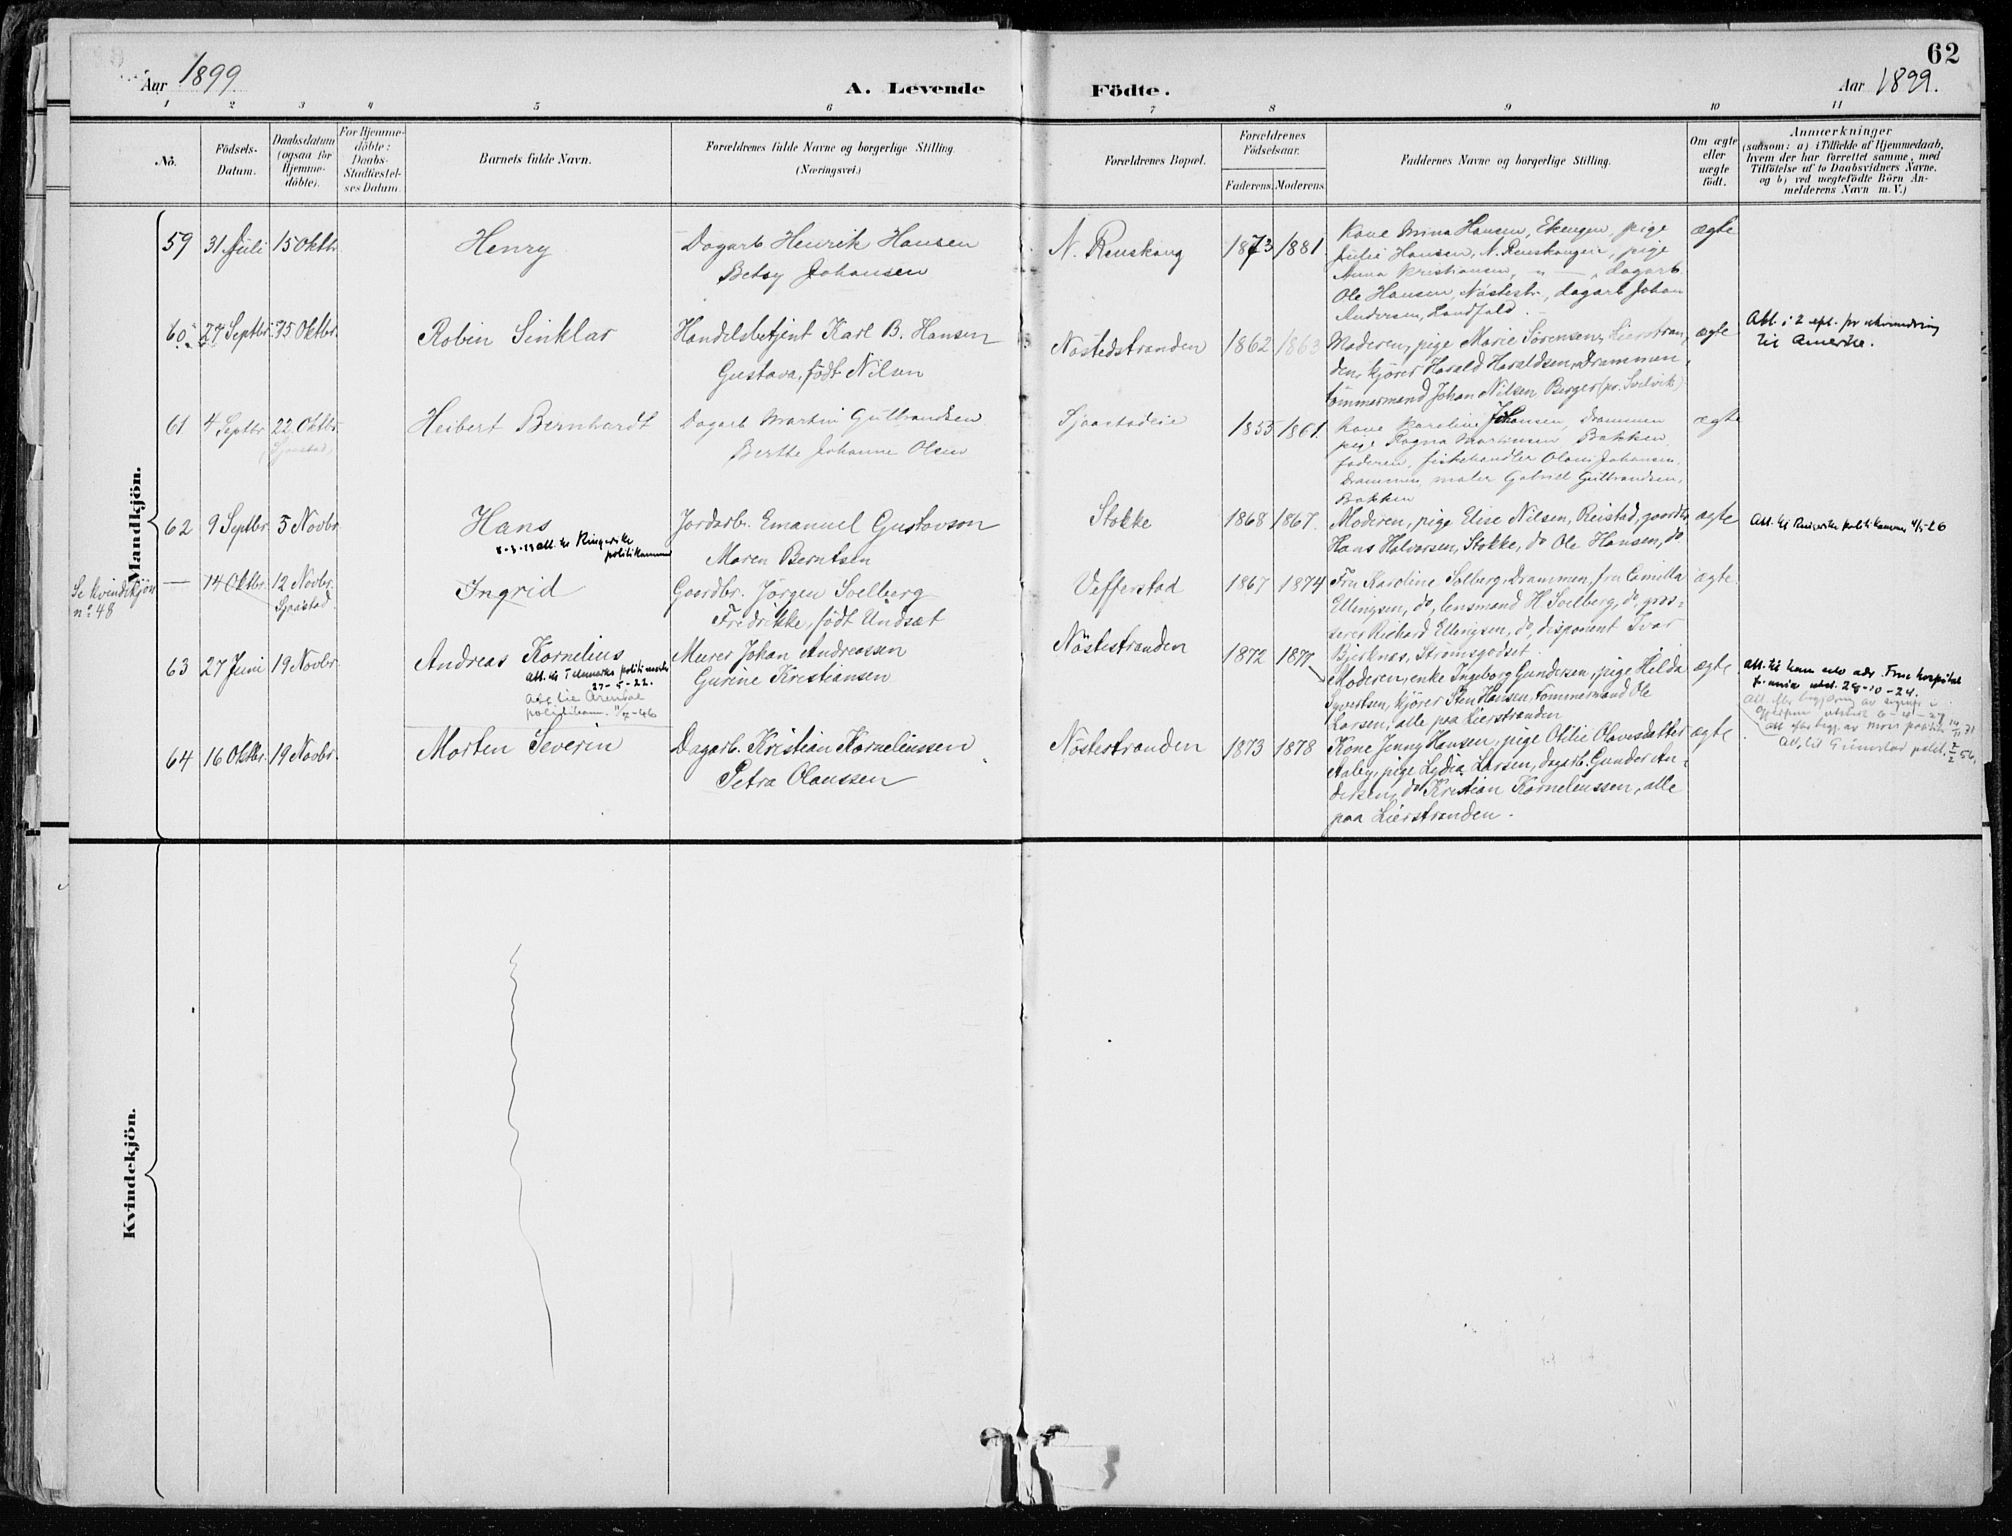 62
Aar 1899
A. Levende
Födte.
Aar 1899.
1 2 3 4 5 6 7 8 9 10 11
No.
Födsels-
Datum.
Daabsdatum
(ogsaa for
Hjemme-
döbte).
For Hjemme-
döbte:
Daabs-
Stadfæstel-
ses Datum.
Barnets fulde Navn.
Forældrenes fulde Navne og borgerlige Stilling
(Næringsvei.)
Forældrenes Bopæl.
Forældrenes
Födselsaar.
Faderens. Moderens.
Faddernes Navne og borgerlige Stilling.
Om ægte
eller
uægte
født.
Anmærkninger
(saasom: a) i Tilfælde af Hjemmedaab,
hvem der har forrettet samme, med
Tilföielse af to Daabsvidners Navne,
og b) ved uægtefödte Börn An-
melderens Navn m. V.)
Mandkjön.
59 31 Juli 15 Oktb. Henry
Dagarb. Henrik Hansen
Betsy Johansen
N. Renskoug 1873 1881
Kone Mina Hansen, Ekengen, pige
Julie Hansen, N. Renskougen, pige
Anna Kristiansen, — " — , dagarb.
Ole Hansen, Nöstestr., dagarb. Johan
Andersen, Landfald.
ægte
60 27 Septbr. 15 Oktbr. Robin Sinklar
Handelsbetjent Karl B. Hansen
Gustava, født Nilsen
Nöstedstranden 1862 1863
Moderen, pige Marie Sörensen, Lierstran-
den, kjörer Harald Haraldsen, Drammen,
tömmermand Johan Nilsen, Berger (pr. Svelvik)
ægte
Att. i 2 expl. for utvandring
til Amerika.
61 4 Septbr. 22 Oktbr.
(Sjaastad)
Heibert Bernhardt
Dagarb. Martin Gulbrandsen
Berthe Johanne Olsen
Sjaastadeie 1855 1861.
Kone Karoline Johansen, Drammen
pige Ragna Martinsen Bakken
faderen, fiskehandler Olaus Johansen,
Drammen, maler Gabriel Gulbrandsen,
Bakken
ægte
62 9 Septbr. 5 Novbr. Hans
8-3-13 att. til Ringerike
politikammer
Jordarb. Emanuel Gustavson
Maren Berntsen
Stokke 1868 1867.
Moderen, pige Elise Nilsen, Reistad, gaardbr.
Hans Halvorsen, Stokke, do Ole Hansen, do
ægte
Att. til Ringerike politikammer 4/5-26
Se Kvindekjön
no. 48
— 14 Oktbr. 12 Novbr.
Sjaastad.
Ingrid
Gaardbr. Jörgen Solberg
Fredrikke, født Undsæt
Vefferstad 1867 1874
Fru Karoline Solberg, Drammen, fru Camilla
Ellingsen, do, lensmand H. Solberg, do, gros-
serer Richard Ellingsen, do, disponent Ivar
Björknæs, Strömsgodset.
ægte.
63 27 Juni 19 Novbr. Andreas Kornelius
Att. til Telemarks politimester
27-5-22.
Att. til Arendal
politikam.
Murer Johan Andreassen
Gurine Kristiansen
Nöstestranden 1872 1877
Moderen, enke Ingeborg Gundersen, pige Hilda
Syvertsen, kjörer Sten Hansen, tömmermand Ole
Larsen, alle paa Lierstranden
ægte
64 16 Oktbr. 19 Novbr. Morten Severin
Dagarb. Kristian Korneliussen
Petra Olaussen
Nöstestranden 1873 1878
Kone Jenny Hansen, pige Otilie Olavesdatter
Aaby, pige Lydia Larsen, dagarb. Gunder An-
dersen, do Kristian Korneliussen, alle
paa Lierstranden.
ægte
Kvindekjön.